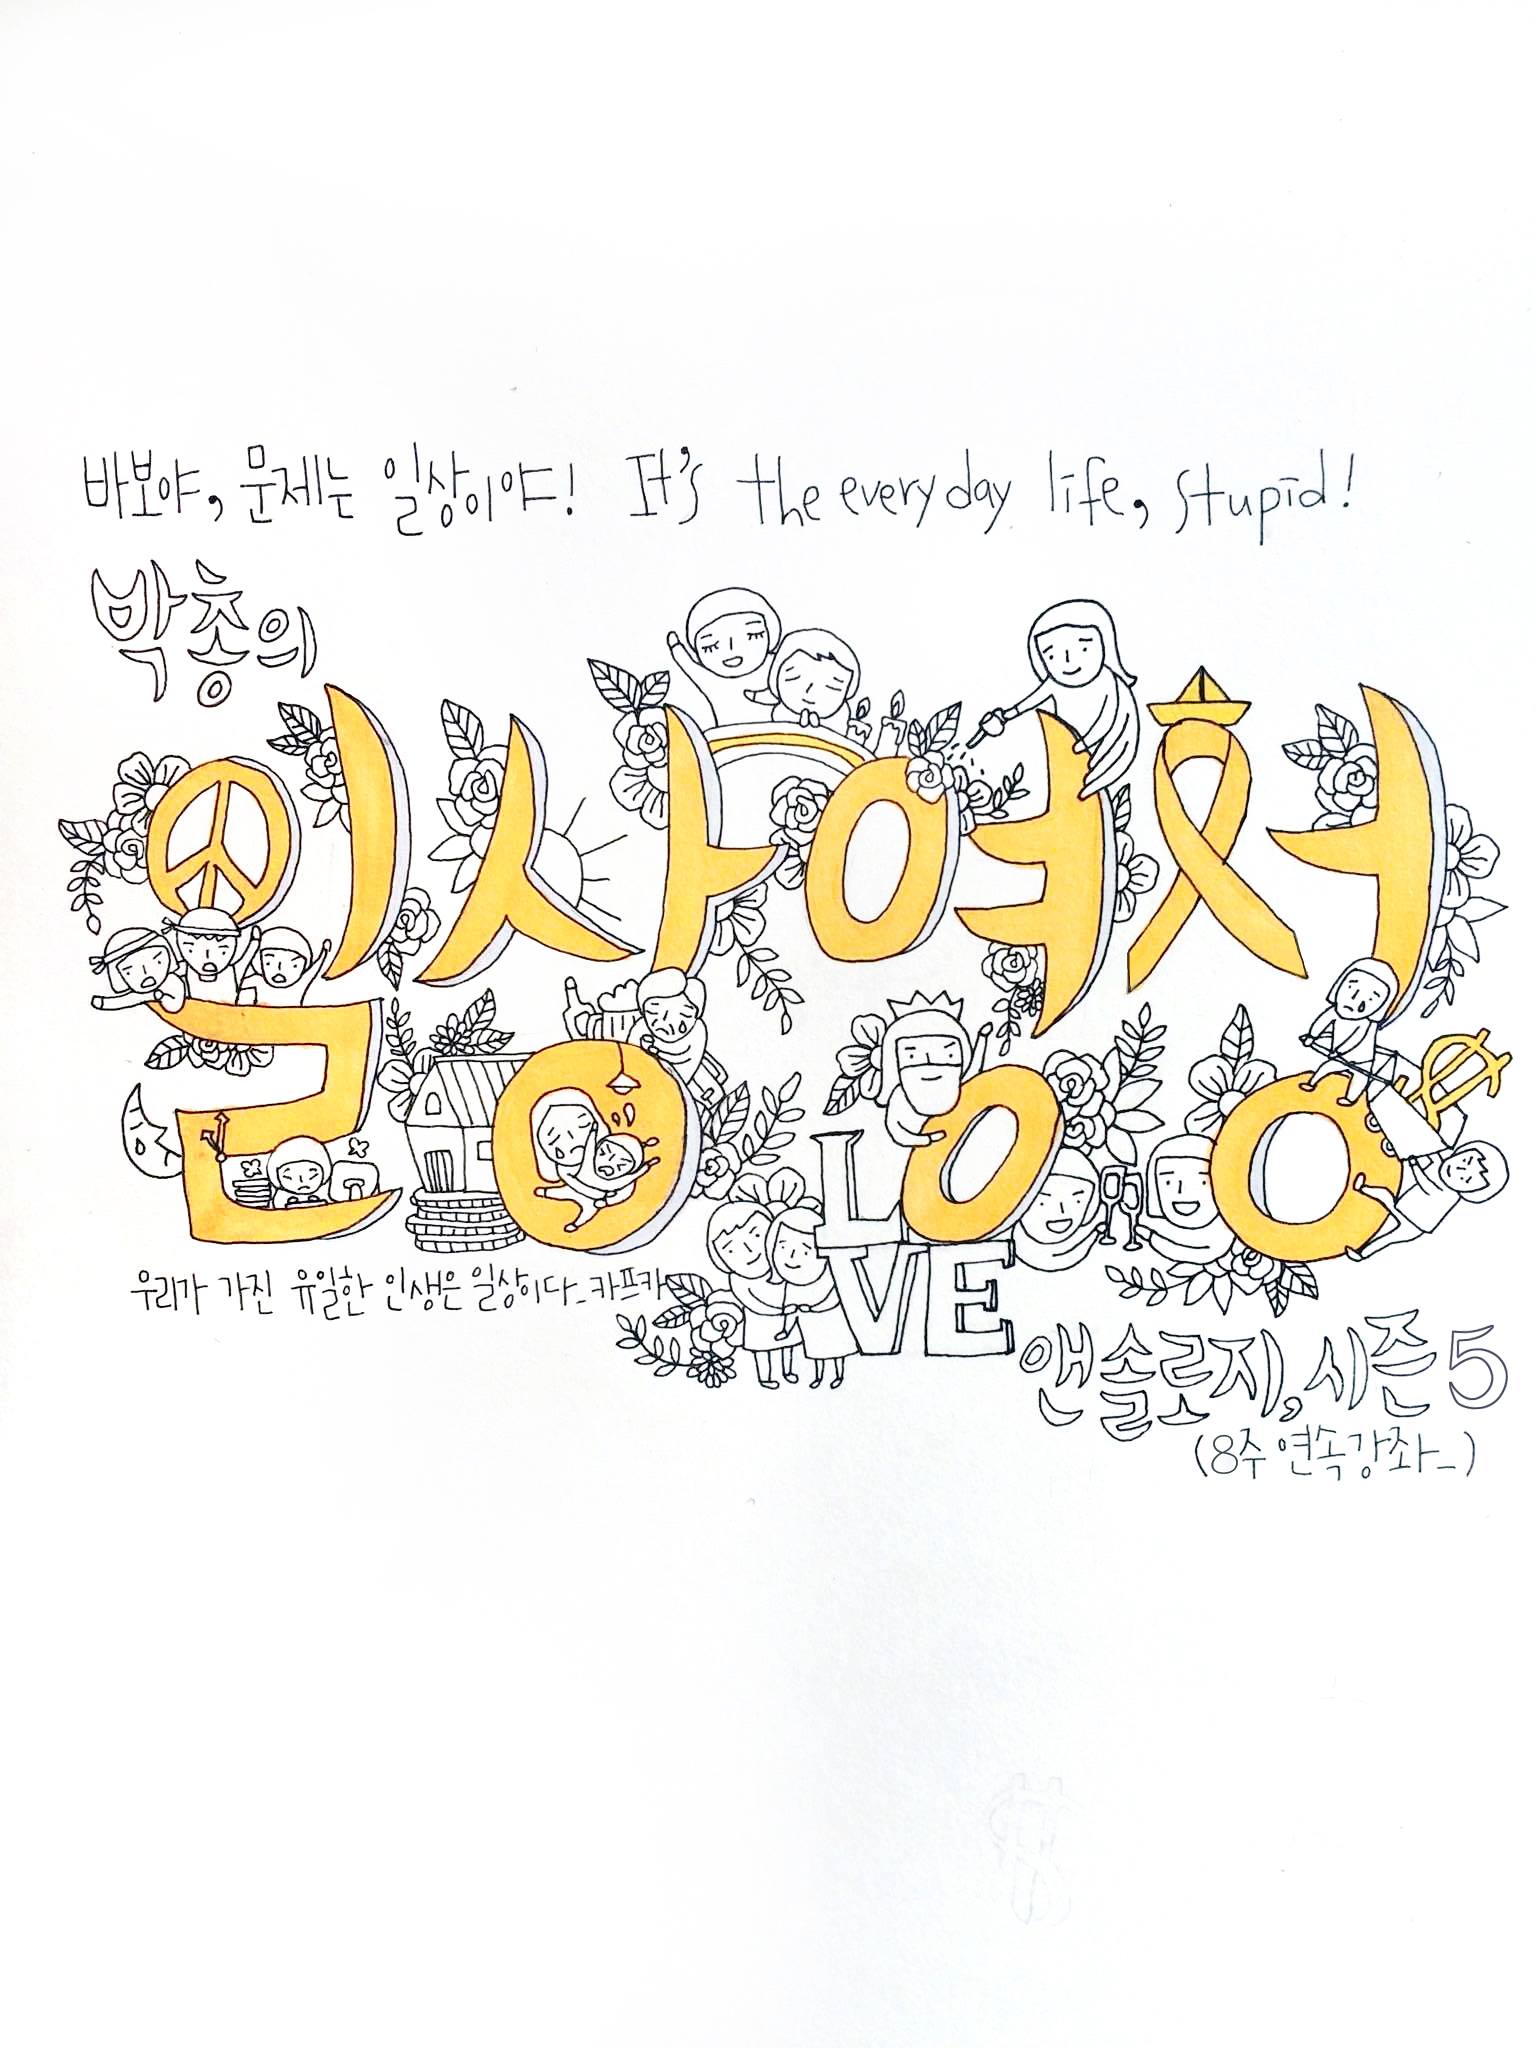 바보야, 문제는 일상이야! It's the everyday life, stupid!
박총의
일상영성
LO
VE
우리가 가진 유일한 인생은 일상이다_카프카
앤솔로지, 시즌5
(8주 연속강좌_)